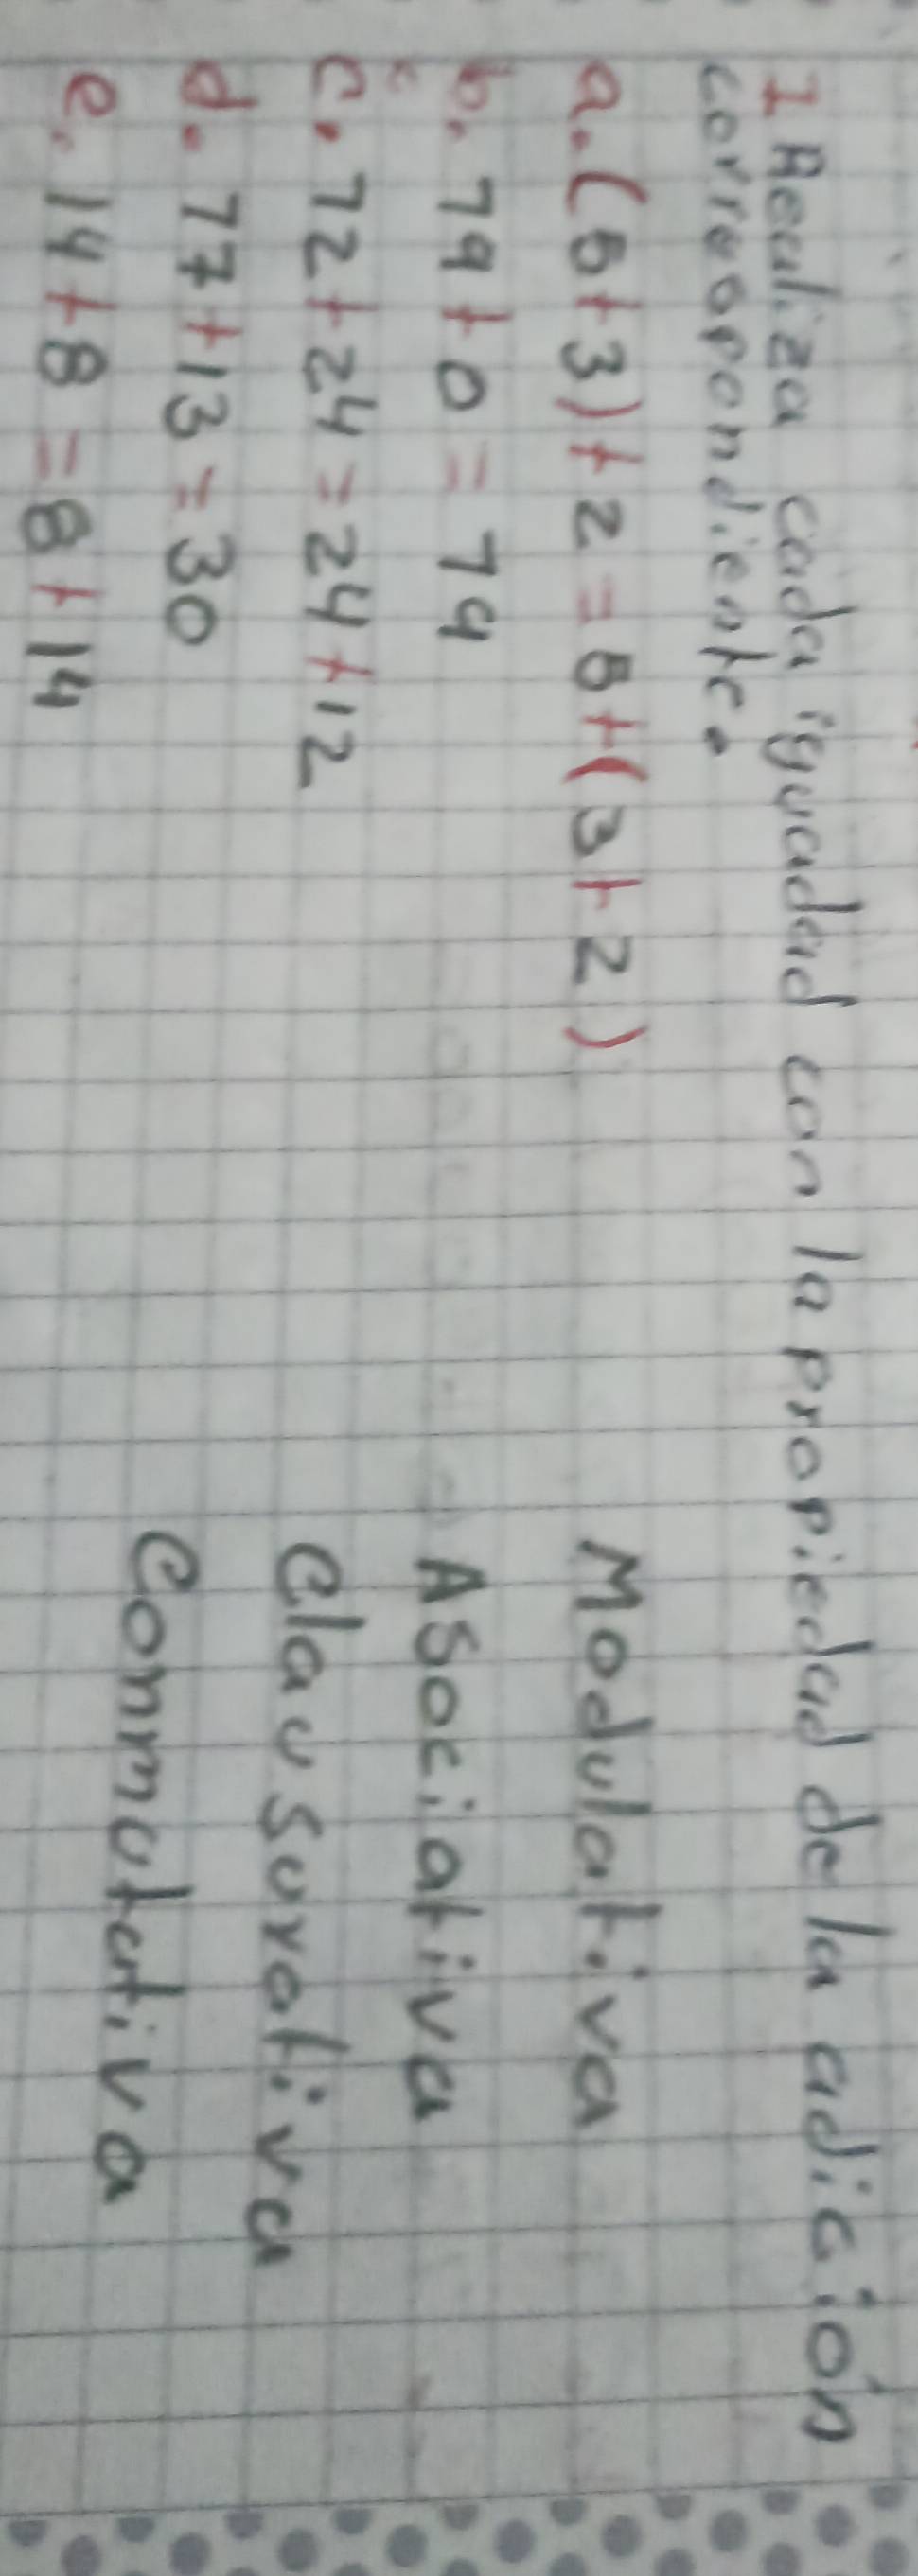 1 Realiza cada iguadad con la propiedad de la adición
correspondiente.
a. (5+3)+2 = 5+(3+2) Modulativa
b. 19+0 = 19 Asociativa
c. 12+24 = 24+12 Clausurativa
d. 17+13 = 30 Conmutativa
e. 14+8 = 8+14